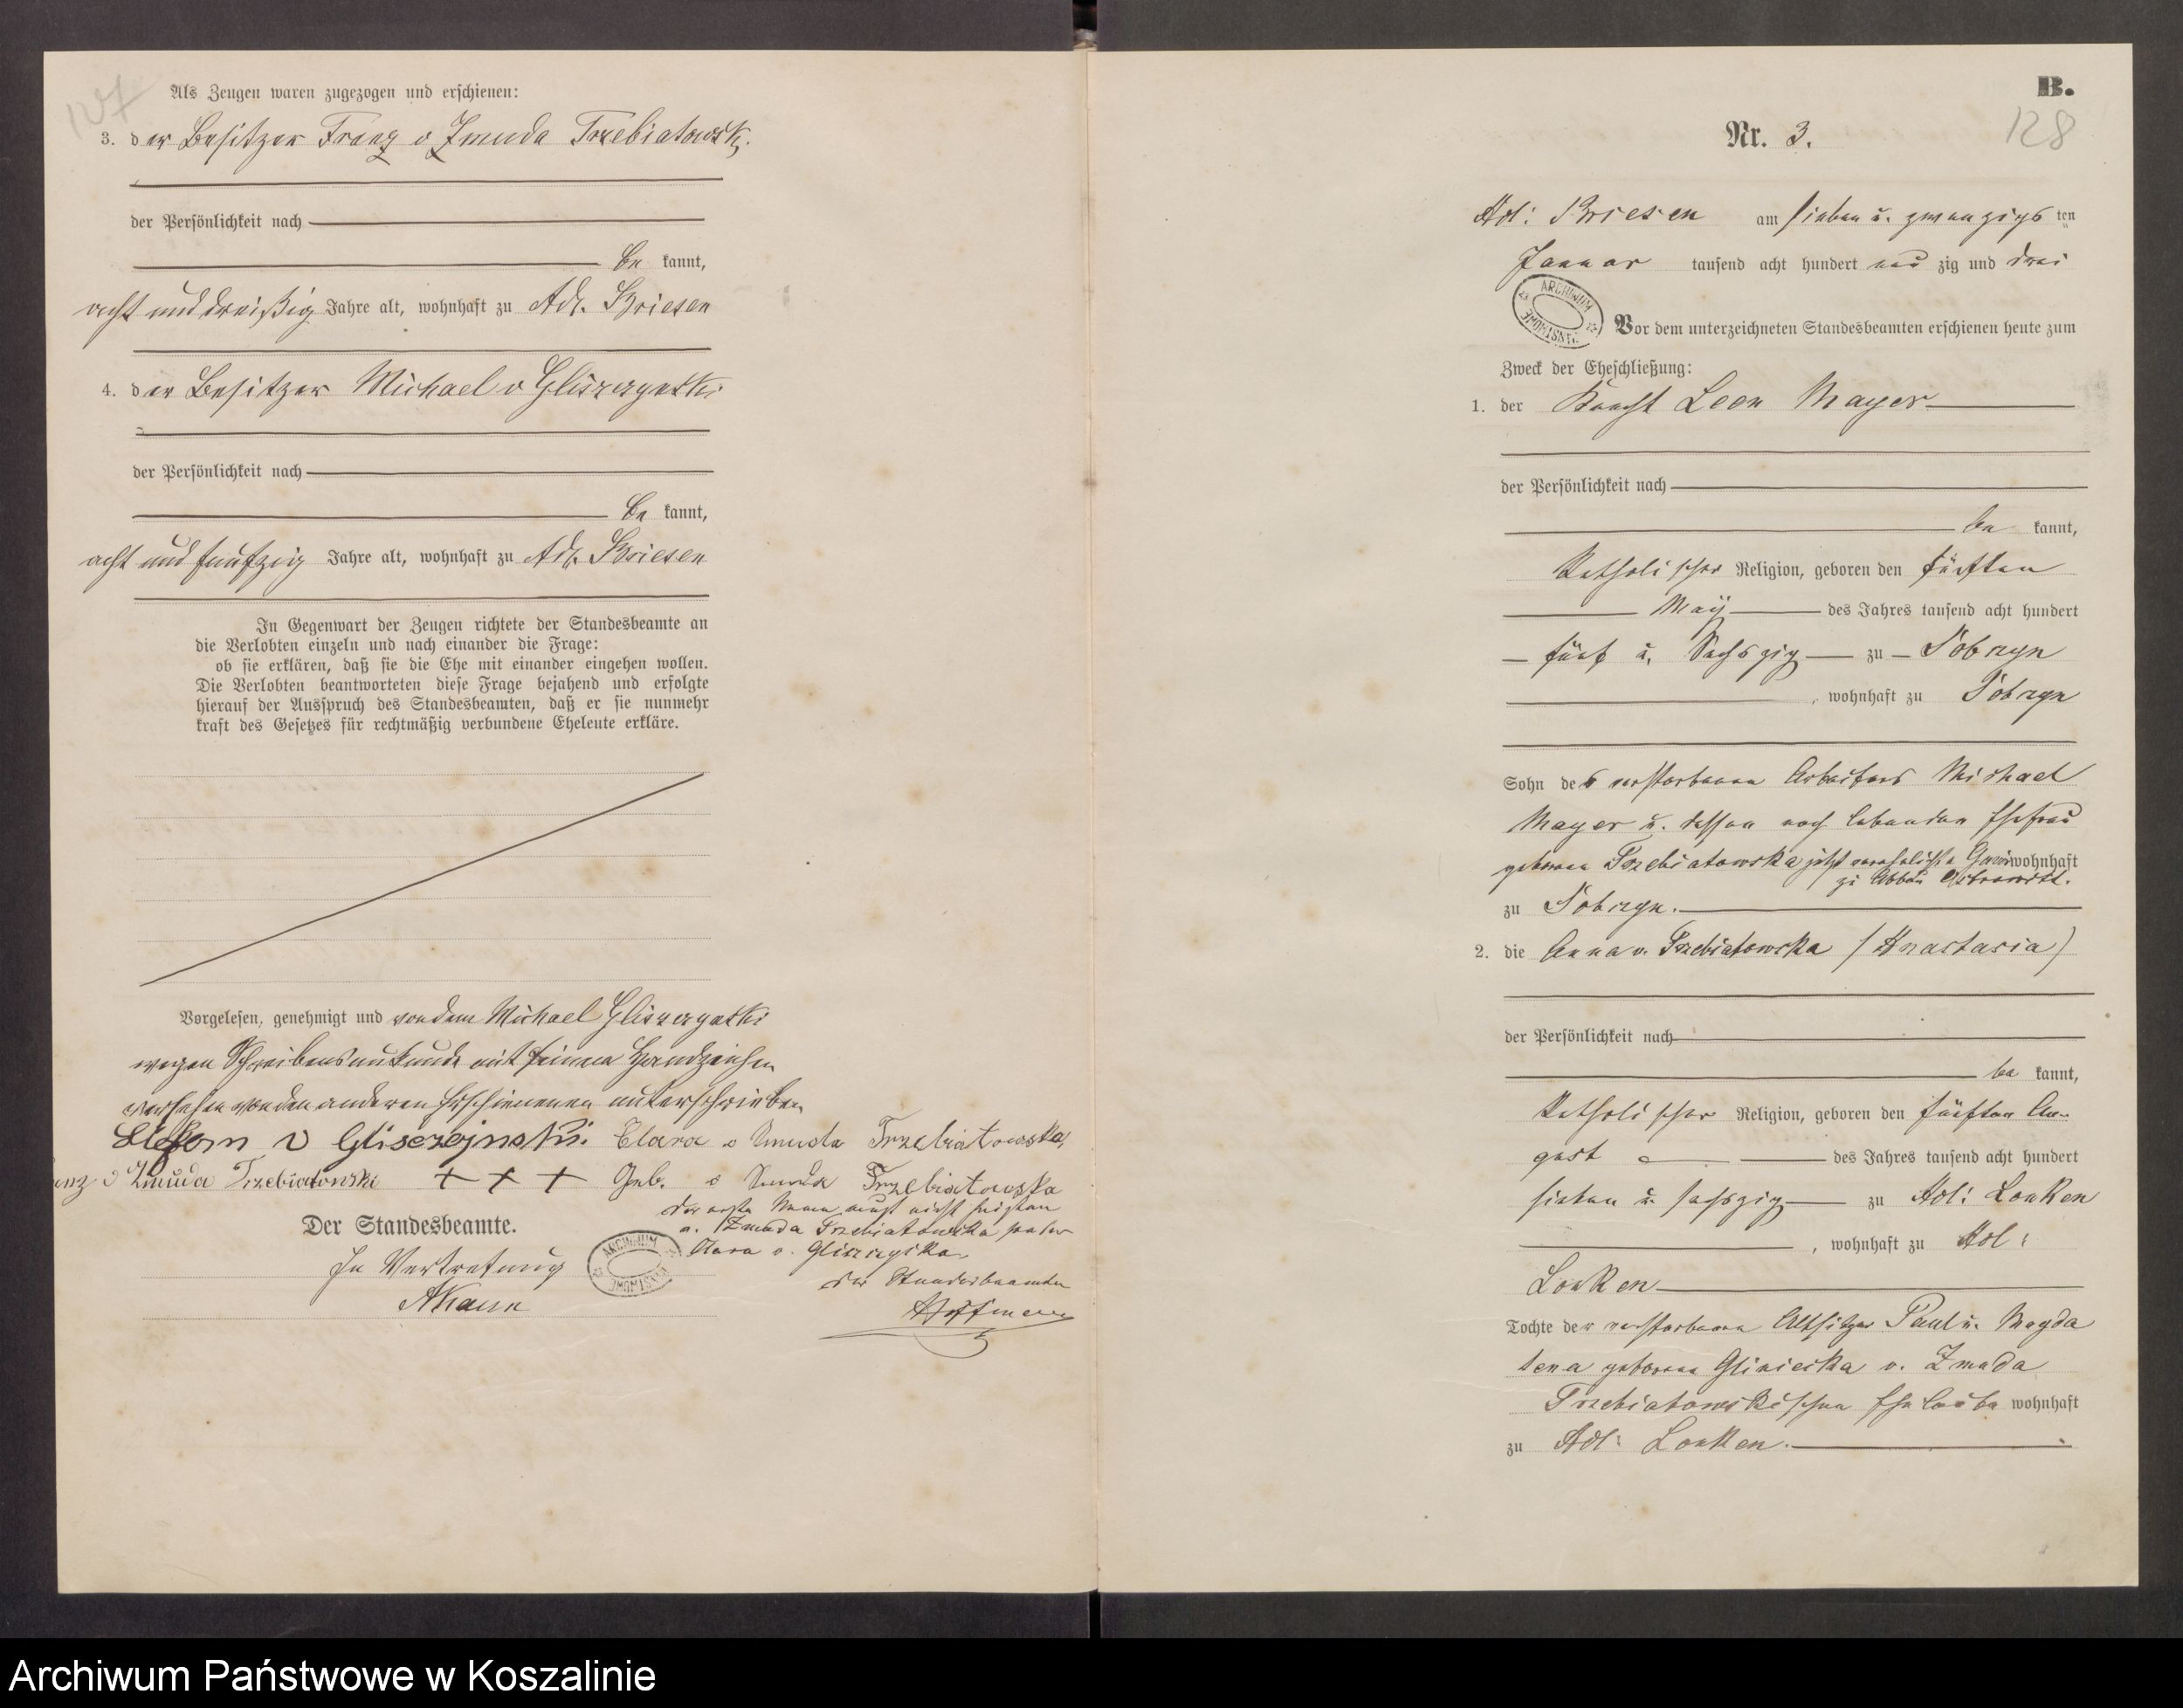 127
Als Zeugen waren zugezogen und erschienen:
3. der Besitzer Franz v Zmuda Trzebiatowski
der Persönlichkeit nach
be kannt,
acht und dreißig Jahre alt, wohnhaft zu Adl. Briesen
4. der Besitzer Michael v Gliszczynski
der Persönlichkeit nach
be kannt,
acht und fünfzig Jahre alt, wohnhaft zu Adl. Briesen
In Gegenwart der Zeugen richtete der Standesbeamte an
die Verlobten einzeln und nach einander die Frage:
ob sie erklären, daß sie die Ehe mit einander eingehen wollen.
Die Verlobten beantworteten diese Frage bejahend und erfolgte
hierauf der Ausspruch des Standesbeamten, daß er sie nunmehr
kraft des Gesetzes für rechtmäßig verbundene Eheleute erkläre.
Vorgelesen, genehmigt und von dem Michael Gliszczynski
wegen Schreibensunkunde mit seinem Handzeichen
versehen von den anderen Erschienenen unterschrieben
v Gliszczynski. Clara v Zmuda Trzebiatowska,
v Zmuda Trzebiatowski + + + Geb. v Zmuda Trzebiatowska
Der erste Name muß nicht heißen
v. Zmuda Trzebiatowska sondern
Clara v. Gliszczynska
Der Standesbeamte.
In Vertretung
ARCHIWUM
Der Standesbeamte
Hoffmann
B.
128
Nr. 3.
Adl: Briesen am sieben u. zwanzigsten
Januar tausend acht hundert neun zig und drei
ARCHIWUM
Vor dem unterzeichneten Standesbeamten erschienen heute zum
Zweck der Eheschließung:
1. der Knecht Leon Mayer
der Persönlichkeit nach
be kannt,
Katholischer Religion, geboren den fünften
May des Jahres tausend acht hundert
fünf u. Sechszig zu
, wohnhaft zu
Sohn des verstorbenen Arbeiters Michael
Mayer u. dessen noch lebenden Ehefrau
geborene Trzebiatowska jetzt verehelichte wohnhaft
zu Abbau
zu
2. die Anna v. Trzebiatowska (Anastasia)
der Persönlichkeit nach
be kannt,
Katholischer Religion, geboren den fünften Au-
gust des Jahres tausend acht hundert
sieben u. sechszig zu Adl: Lonken
, wohnhaft zu Adl:
Lonken
Tochter der verstorbenen Altsitzer Paul u. Magda
lena geborene Gliniecka v. Zmuda
Trzebiatowskischen Eheleute wohnhaft
zu Adl: Lonken.
Archiwum Państwowe w Koszalinie